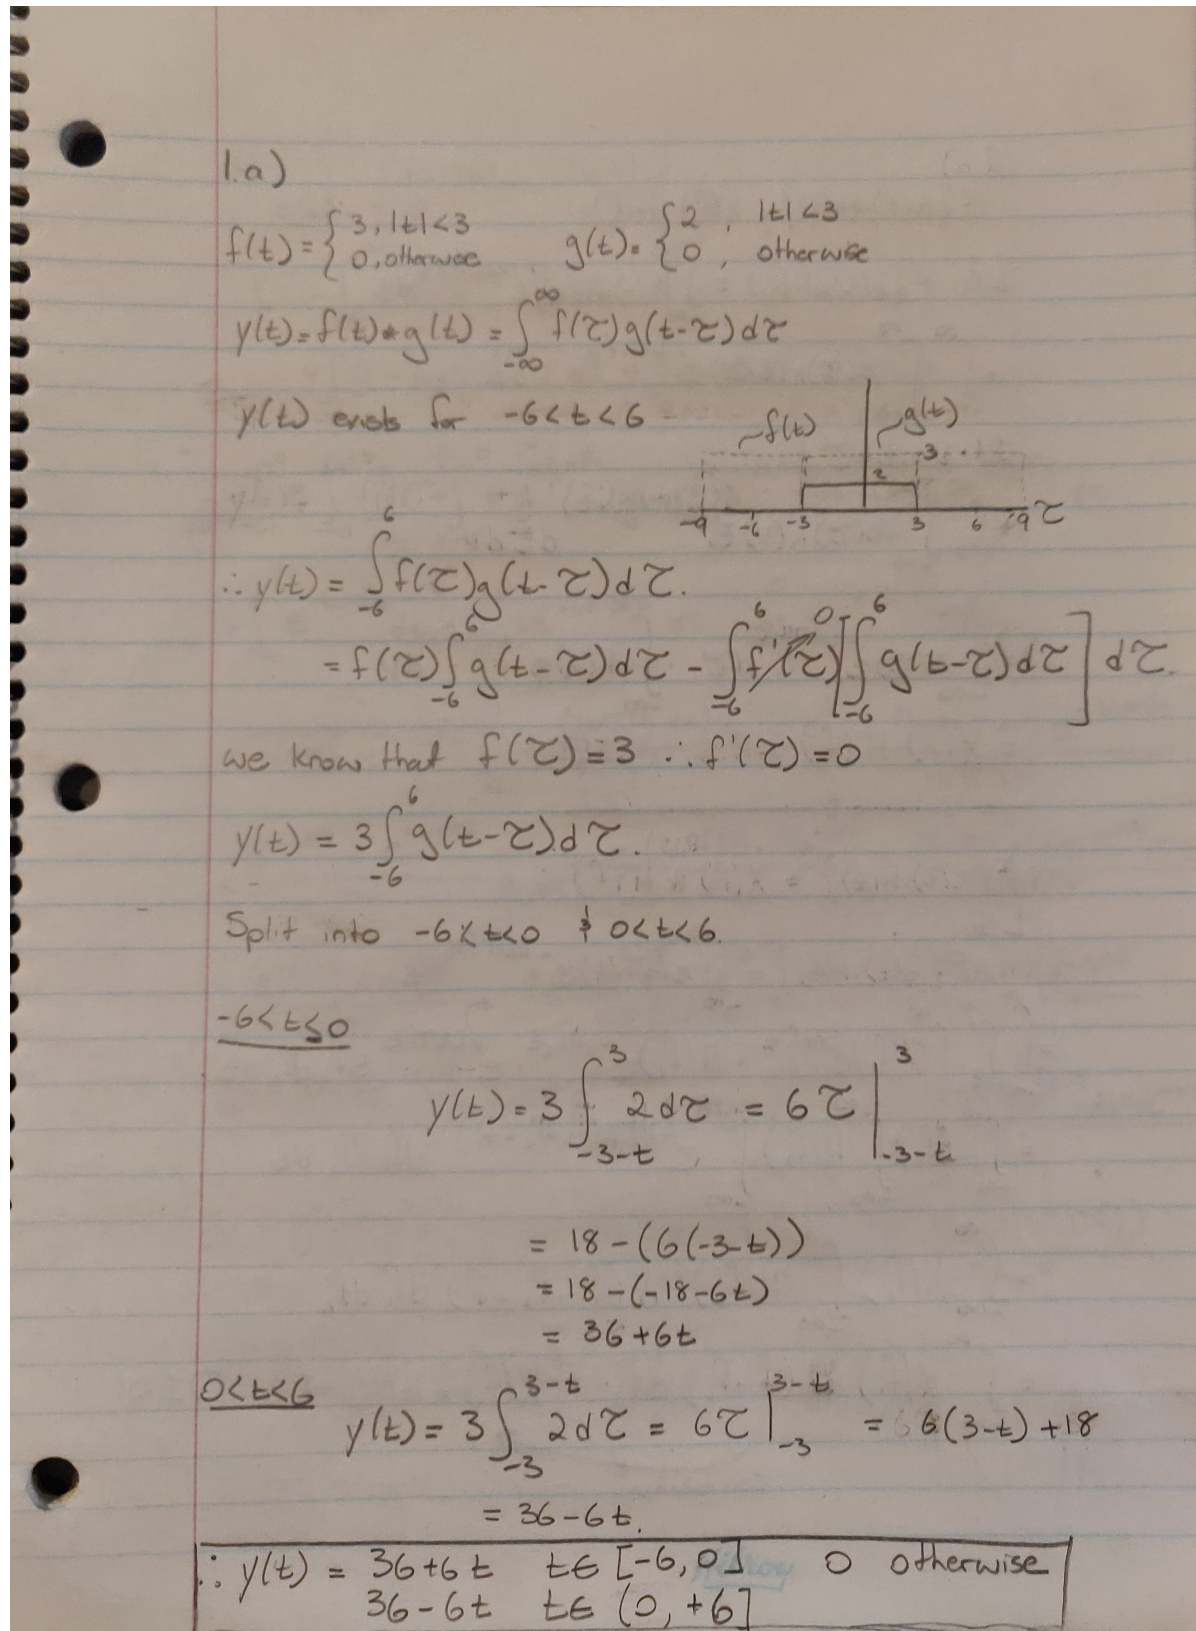 1.a)
f(t) = { 3, |t|<3 0, otherwise g(t) = { 2, |t|<3 0, otherwise
y(t) = f(t) * g(t) = ∫_{-∞}^{∞} f(τ)g(t-τ)dτ
y(t) exists for -6<t<6
f(t) g(t)
3
2
-9 -6 -3 3 6 9 τ
∴ y(t) = ∫_{-6}^{6} f(τ)g(t-τ)dτ.
= f(τ)∫_{-6}^{6} g(t-τ)dτ - ∫_{-6}^{6} f'(τ) 0 [∫_{-6}^{6} g(t-τ)dτ] dτ
we know that f(τ)=3 ∴ f'(τ)=0
y(t) = 3∫_{-6}^{6} g(t-τ)dτ.
Split into -6<t<0 & 0<t<6.
-6<t≤0
y(t) = 3∫_{-3-t}^{3} 2dτ = 6τ |_{-3-t}^{3}
= 18-(6(-3-t))
= 18-(-18-6t)
= 36+6t
0<t<6
y(t) = 3∫_{-3}^{3-t} 2dτ = 6τ |_{-3}^{3-t} = 6(3-t)+18
= 36-6t.
∴ y(t) = 36+6t t∈ [-6,0] 0 otherwise
36-6t t∈ (0,+6]